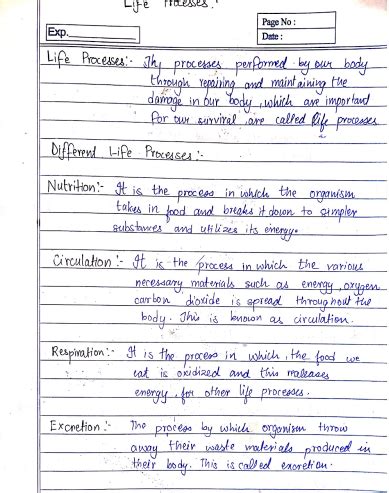 Life Processes:
Page No :
Exp.
Date :
Life Processes:- The processes performed by our body
through repairing and maintaining the
damage in our body, which are important
for our survival are called life processes
Different Life Processes :-
Nutrition:- It is the process in which the organism
takes in food and breaks it down to simpler
substances and utilizes its energy.
Circulation :- It is the process in which the various
necessary materials such as energy, oxygen
carbon dioxide is spread throughout the
body. This is known as circulation.
Respiration:- It is the process in which, the food we
eat is oxidized and this realeases
energy, for other life processes.
Excretion :- The process by which organism throw
away their waste materials produced in
their body. This is called excretion.